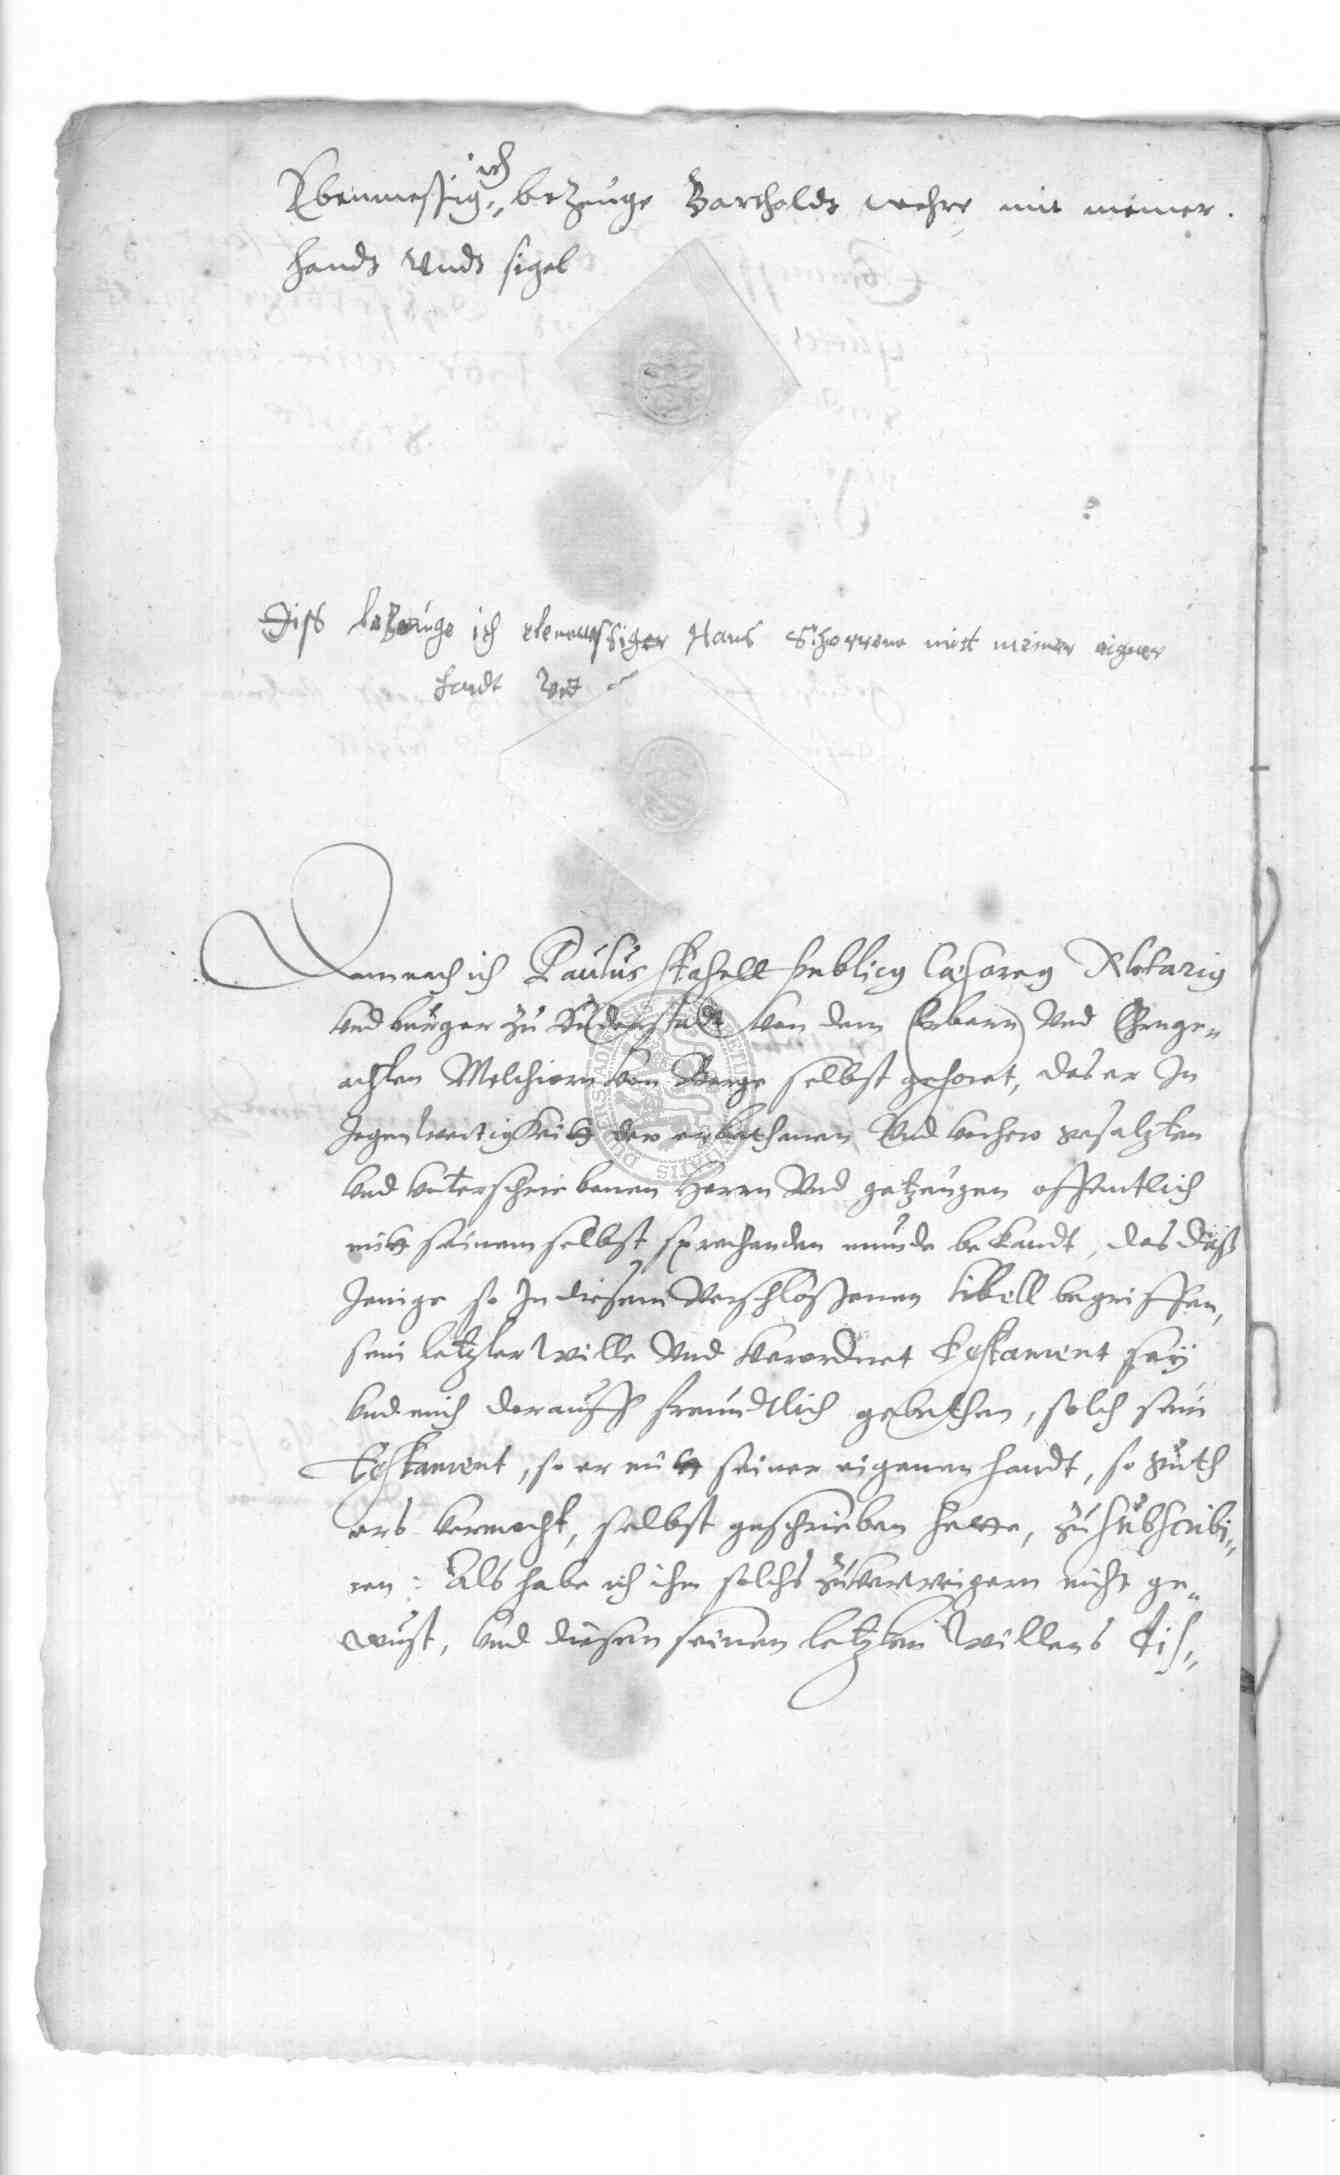 ich
Ebenmessig bezeuge Bartholdt wehre mit meiner
handt vndt sigel
Diss bezeuge ich ebenmessiger Hans mitt meiner eigner
handt
Demnach ich Paulus Stahell publicus Caesareus Notarius
vnd burger zu Duderstadt von dem Erbarn vnd Ehrnge-
achten Melchiorn von Berge selbst gehoret, das er In
Jegenwertigkeitt der erbethenen vnd
vnd vnterschriebenen Herrn vnd getzeugen offentlich
mitt seinem selbst sprechenden munde bekandt, das daß
Jenige so In diesem verschlossenen libell begriffen,
sein letzter wille vnd verordnet Testament seÿ
vnd mich darauff freundtlich gebethen, solch sein
Testament, so er mitt seiner eigenen handt, so
ers vermocht, selbst geschrieben hette, zu subscribi-
ren: Als habe ich ihm solchs zuverweigern nicht ge-
wust, vnd diesen seinen letzten willens dis-